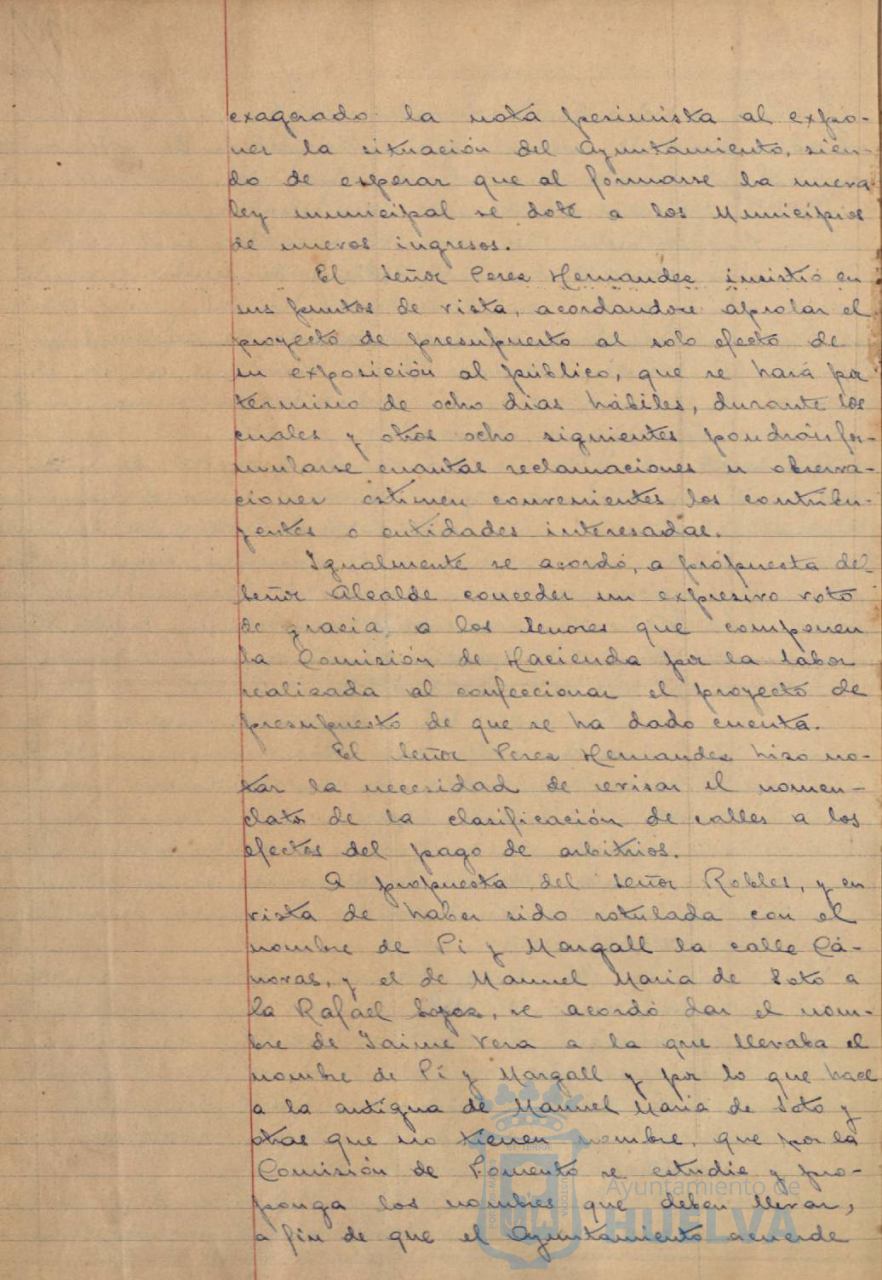 exagerado la nota pesimista al expo-
ner la situación del Ayuntamiento, sien-
do de esperar que al formarse la nueva
ley municipal se dote a los Municipios
de nuevos ingresos.
El Señor Perez Hernandez insistió en
sus puntos de vista, acordandose aprobar el
proyecto de presupuesto al solo efecto de
su exposición al público, que se hará por
término de ocho dias hábiles, durante los
cuales y otros ocho siguientes pondrán for-
mularse cuantas reclamaciones u observa-
ciones estimen convenientes los contribu-
yentes o entidades interesadas.
Igualmente se acordó, a propuesta del
Señor Alcalde conceder un expresivo voto
de gracia, a los Senores que componen
la Comisión de Hacienda por la labor
realizada al confeccionar el proyecto de
presupuesto de que se ha dado cuenta.
El Señor Perez Hernandez hizo no-
tar la necesidad de revisar el nomen-
clator de la clasificación de calles a los
efectos del pago de arbitrios.
A propuesta del Señor Robles, y en
vista de haber sido rotulada con el
nombre de Pí y Margall la calle Cá-
novas, y el de Manuel Maria de Soto a
la Rafael Lopez, se acordó dar el nom-
bre de Jaime Vera a la que llevaba el
nombre de Pí y Margall y por lo que hace
a la antigua de Manuel Maria de Soto y
otras que no tienen nombre, que por la
Comisión de Fomento se estudie y pro-
ponga los nombres que deben llevar,
a fin de que el Ayuntamiento acuerde
Ayuntamiento de
HUELVA